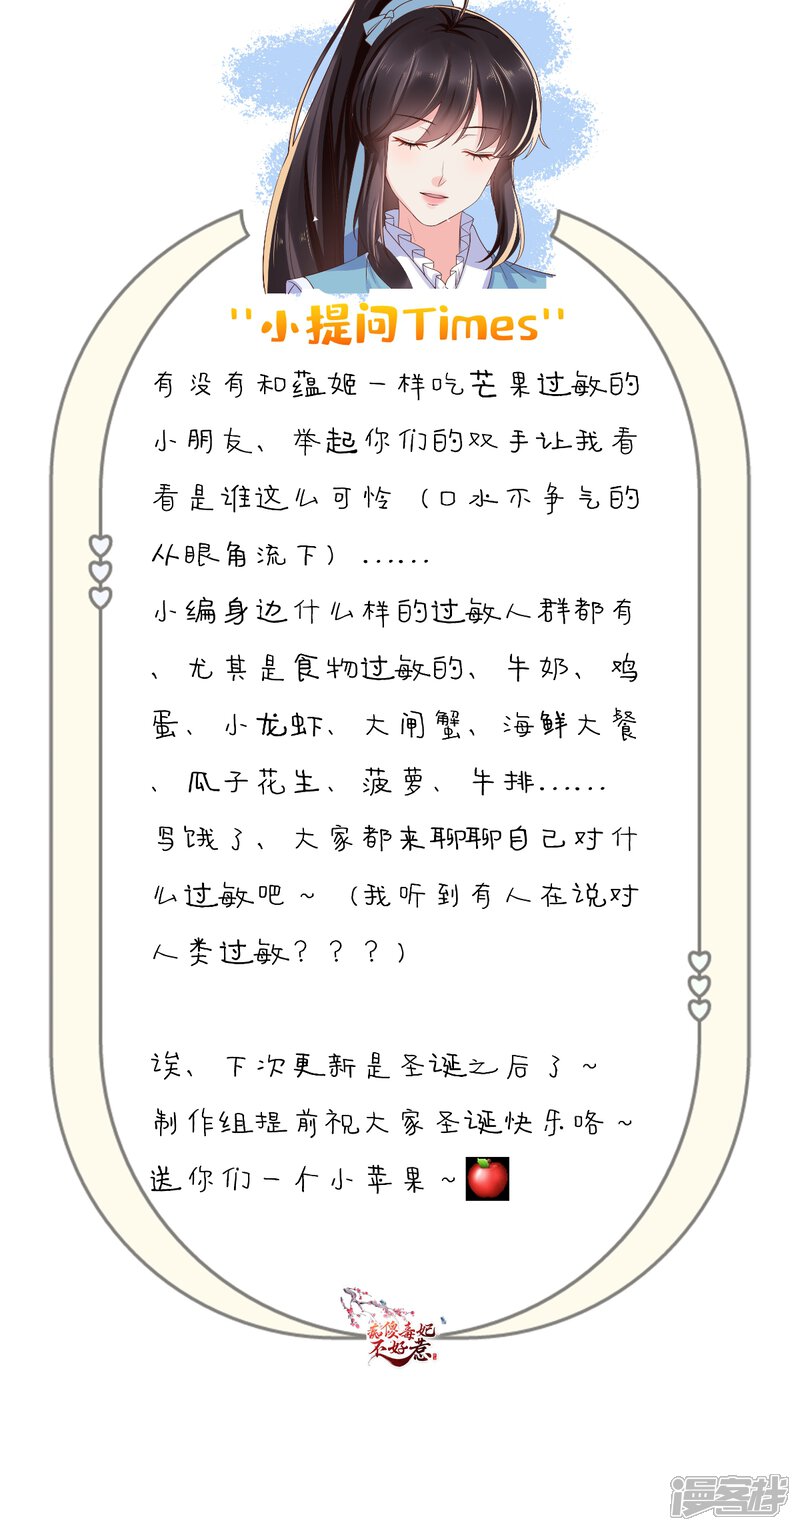 "小提问Times"
有没有和蕴姬一样吃芒果过敏的
小朋友、举起你们的双手让我看
看是谁这么可怜（口水不争气的
从眼角流下）……
小编身边什么样的过敏人群都有
、尤其是食物过敏的、牛奶、鸡
蛋、小龙虾、大闸蟹、海鲜大餐
、瓜子花生、菠萝、牛排……
写饿了、大家都来聊聊自己对什
么过敏吧～（我听到有人在说对
人类过敏？？？）
诶、下次更新是圣诞之后了～
制作组提前祝大家圣诞快乐咯～
送你们一个小苹果～
痴傻毒妃
不好惹
漫客栈